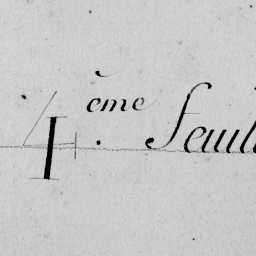 4.ème feuil